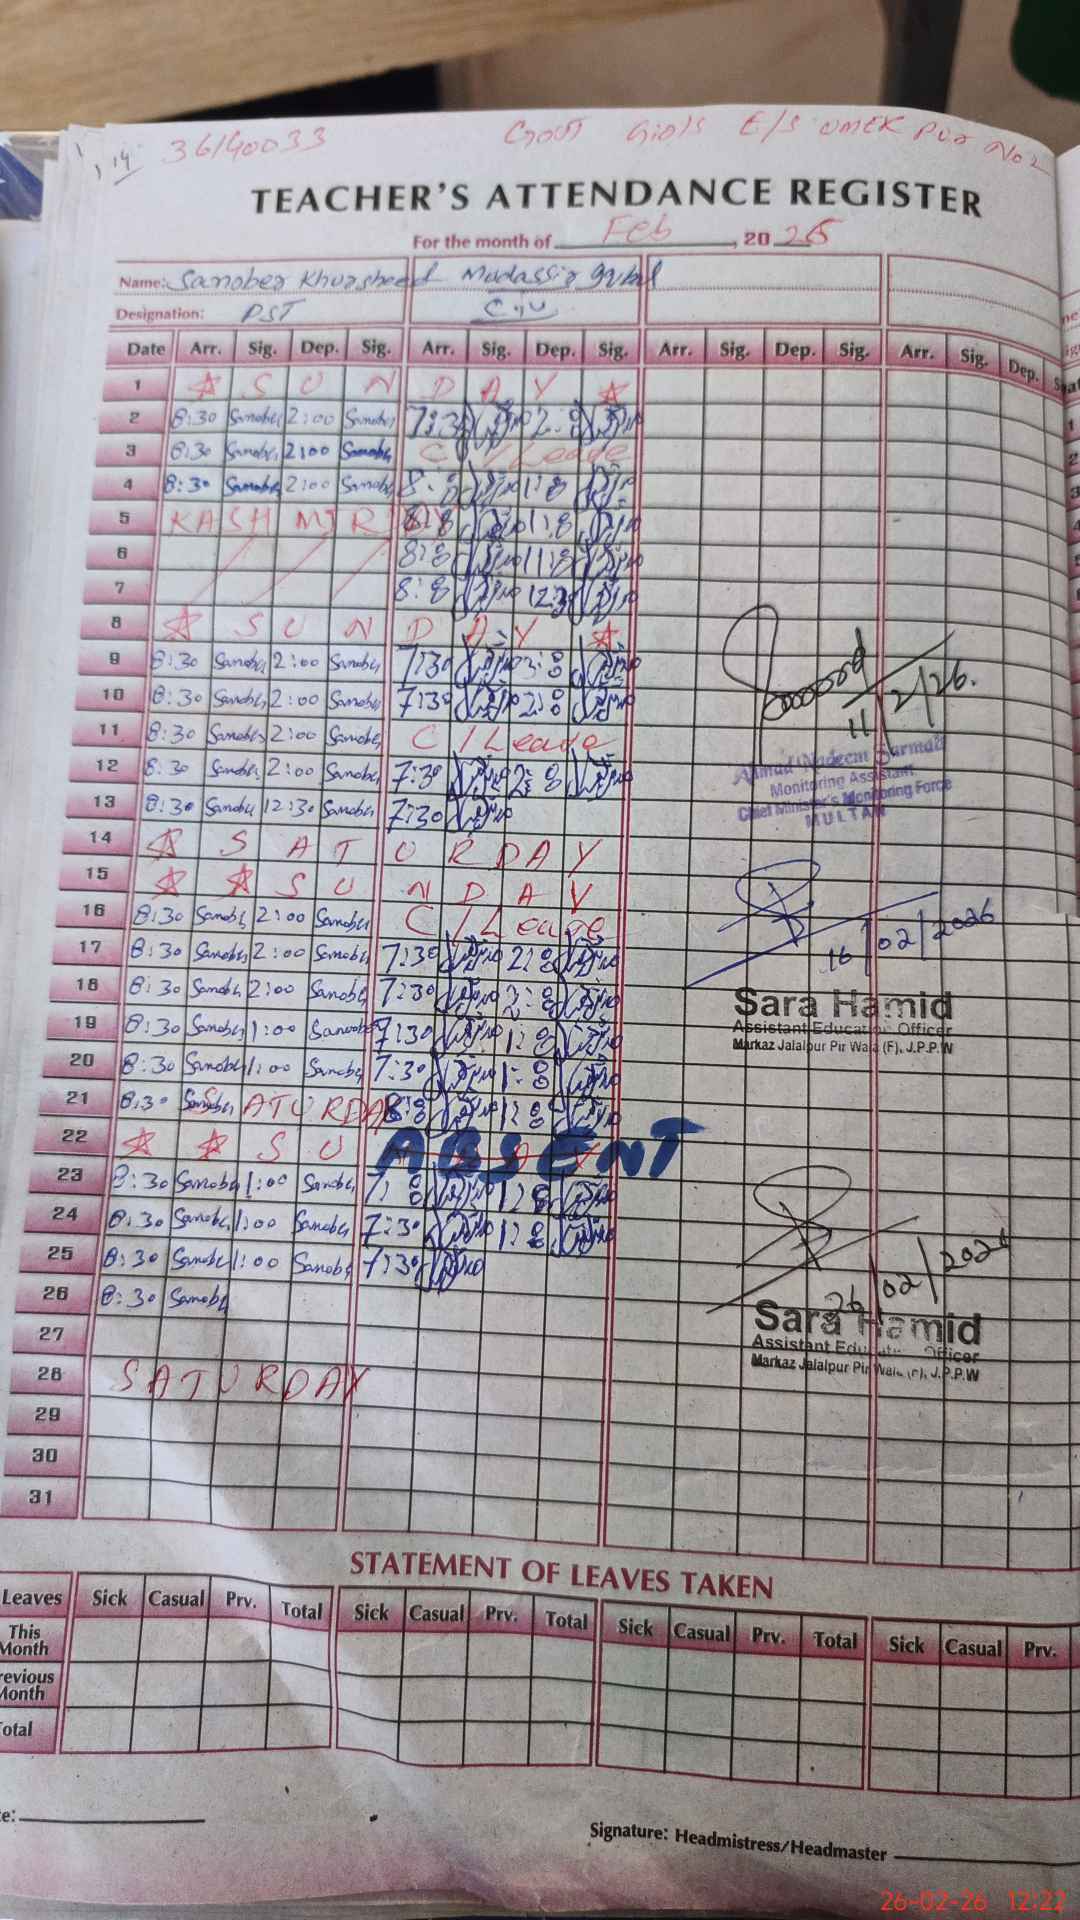 36140033 Govt Girls E/S UMEK PUR No 2
TEACHER'S ATTENDANCE REGISTER
For the month of Feb, 20 26
Name: Sanober Khursheed Mudassir Iqbal
Designation: PST C,IV
Date Arr. Sig. Dep. Sig. Arr. Sig. Dep. Sig. Arr. Sig. Dep. Sig. Arr. Sig. Dep.
1 SUNDAY
2 8:30 Sanober 2:00 Sanober 7:30 2:00
3 8:30 Sanober 2:00 Sanober C/Leave
4 8:30 Sanober 2:00 Sanober 8:00 1:00
5 KASHMIR DAY 8:00 1:00
6 8:00 11:00
7 8:00 12:30
8 SUNDAY
9 8:30 Sanober 2:00 Sanober 7:30 2:00
10 8:30 Sanober 2:00 Sanober 7:30 2:00
11 8:30 Sanober 2:00 Sanober C/Leave
12 8:30 Sanober 2:00 Sanober 7:30 2:00
13 8:30 Sanober 12:30 Sanober 7:30
11/2/26.
Ahmad Nadeem Sarmad
Monitoring Assistant
Chief Minister's Monitoring Force
MULTAN
14 SATURDAY
15 SUNDAY
16 8:30 Sanober 2:00 Sanober C/Leave
17 8:30 Sanober 2:00 Sanober 7:30 2:00
18 8:30 Sanober 2:00 Sanober 7:30 2:00
16/02/2026
Sara Hamid
Assistant Education Officer
Markaz Jalalpur Pir Wala (F), J.P.P.W
19 8:30 Sanober 1:00 Sanober 7:30 1:00
20 8:30 Sanober 1:00 Sanober 7:30 1:00
21 8:30 Sanober SATURDAY 8:00 12:00
22 SUNDAY ABSENT
23 8:30 Sanober 1:00 Sanober 7:00 1:00
24 8:30 Sanober 1:00 Sanober 7:30 1:00
25 8:30 Sanober 1:00 Sanober 7:30
26 8:30 Sanober
26/02/2026
Sara Hamid
Assistant Education Officer
Markaz Jalalpur Pir Wala (F), J.P.P.W
27
28 SATURDAY
29
30
31
STATEMENT OF LEAVES TAKEN
Leaves Sick Casual Prv. Total Sick Casual Prv. Total Sick Casual Prv. Total Sick Casual Prv.
This Month
Previous Month
Total
Signature: Headmistress/Headmaster
26-02-26 12:22